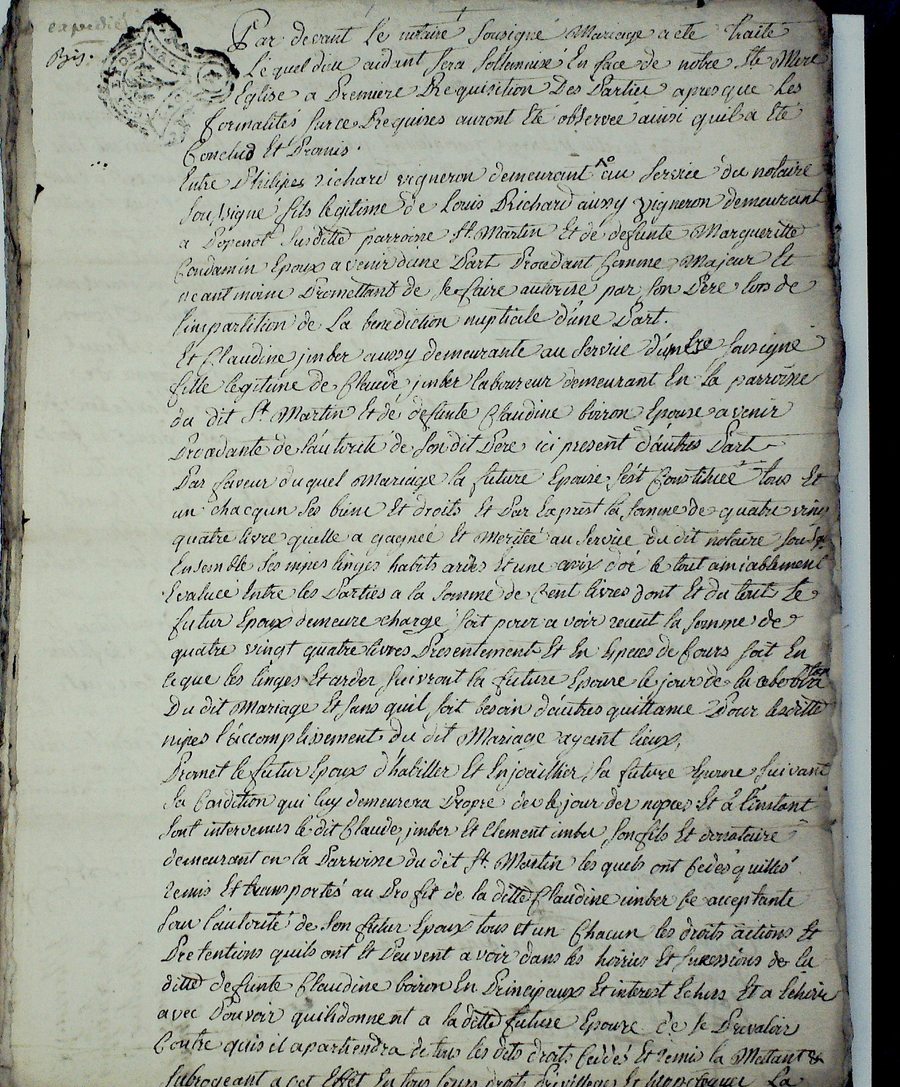 expedié
Par devant Le notaire Sousigné Mariage a eté traité
Lequel dieu aidant Sera Sollemnisé En face de notre Ste Mere
Eglise a Premiere Requisition Des Parties apres que Les
formalites Sur ce Requises auront Eté observeé ainsi quil a Eté
Conclud Et Promis.
Entre Philipes Richard vigneron demeurant au Service du notaire
Sousigné fils legitime de Louis Richard aussy vigneron demeurant
a Susditte parroisse St Martin Et de defunte Margueritte
Condamin Epoux a venir d'une Part Procedant Comme Majeur Et
neantmoins Promettant de Se faire autorisé par Son Pere lors de
l'impartition de La benediction nuptiale d'une Part.
Et Claudine jmber aussy demeurante au Service Sousigné
fille legitime de Claude jmber laboureur demeurant En la parroisse
du dit St Martin Et de defunte Claudine boiron Epouse a venir
Procedante de l'autorité de Son dit Pere ici present d'autres Part
Par faveur du quel Mariage la future Epouse S'est Constitueé tous Et
un chacqun Ses biens Et droits Et Par Exprest la Somme de quatre vingt
quatre livre quelle a gagneé Et Meriteé au Service du dit notaire
Ensemble Ses nipes linges habits ardes Et une croix d'or le tout amiablement
Evalueé Entre les Parties a la Somme de Cent livres dont Et du tout Le
futur Epoux demeure chargé Soit pour avoir receut la Somme de
quatre vingt quatre livres Presentement Et En Especes de Cours Soit En
ce que les linges Et ardes Suivront la future Epouse le jour de la celebration
Du dit Mariage Et Sans quil Soit besoin d'autres quittance Pour lesditte
nipes l'accomplissement du dit Mariage ayant lieux,
Promet le futur Epoux d'habiller Et Enjoailler Sa future Epouse Suivant
Sa Condition qui luy demeurera Propre des le jour des nopces Et a l'instant
Sont intervenus le dit Claude jmber Et Clement imber Son fils Et donataire
demeurant en la Parroisse du dit St Martin les quels ont Cedés quittés
remis Et transportés au Profit de la ditte Claudine imber Ce acceptante
Sous l'autorité de Son futur Epoux tous et un Chacun les droits actions Et
Pretentions quils ont Et Peuvent avoir dans les hoiries Et Successions de la
ditte defunte Claudine boiron En Principaux Et interest Echus Et a Echoir
avec Pouvoir quils donnent a la ditte future Epouse de Se Prevaloir
Contre quis il apartiendra de tous les dits droits Cedés Et remis la Mettant &
Subrogeant a cet Effet En tous leurs droits La